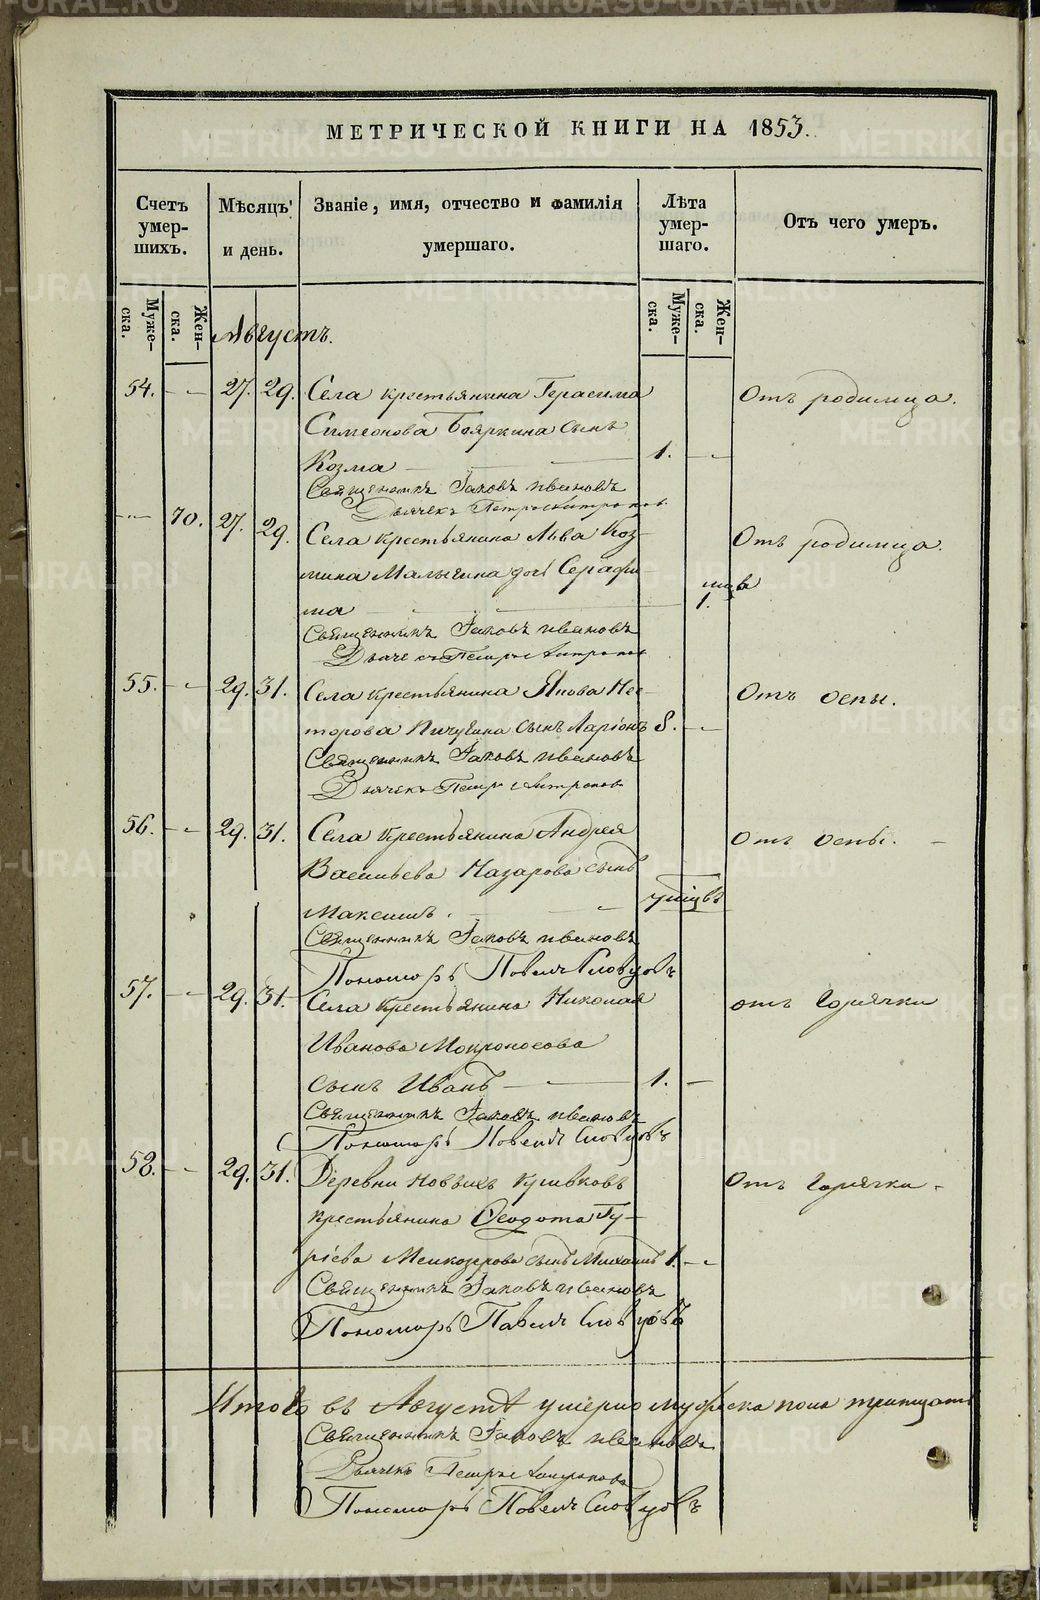 МЕТРИЧЕСКОЙ КНИГИ НА 1853.
Счетъ умер- шихъ.
Мѣсяцъ и день.
Званіе, имя, отчество и фамилія умершаго.
Лѣта умер- шаго.
Отъ чего умеръ.
Муже- ска.
Жен- ска.
Муже- ска.
Жен- ска.
Августъ.
54. 27. 29. Села крестьянина Герасима Отъ родимца.
Симеонова Бояркина сынъ
Козма 1.
Священникъ Іаковъ Ивановъ
Дьячекъ Петръ Антропов
70. 27. 29. Села крестьянина Льва Коз- Отъ родимца.
мина Малыгина дочь Серафи-
ма 1.
Священникъ Іаковъ Ивановъ
Дьячекъ Петръ Антропов
55. 29. 31. Села крестьянина Якова Нес- Отъ оспы.
торова Пичугина сынъ Ларіонъ 8.
Священникъ Іаковъ Ивановъ
Дьячекъ Петръ Антропов
56. 29. 31. Села крестьянина Андрея Отъ оспы.
Васильева Назарова сынъ
Максимъ.
Священникъ Іаковъ Ивановъ
Пономарь Павелъ Словцовъ
57. 29. 31. Села крестьянина Николая отъ горячки
Иванова Мокроносова
сынъ Иванъ 1.
Священникъ Іаковъ Ивановъ
Пономарь Павелъ Словцовъ
58. 29. 31. Деревни Новыхъ Отъ горячки
крестьянина Ѳеодота Гу-
рьева сынъ Михаилъ 1.
Священникъ Іаковъ Ивановъ
Пономарь Павелъ Словцовъ
Итого въ Августѣ умерло мужеска пола тринцать
Священникъ Іаковъ Ивановъ
Дьячекъ Петръ Антропов
Пономарь Павелъ Словцовъ
METRIKI.GASU-URAL.RU